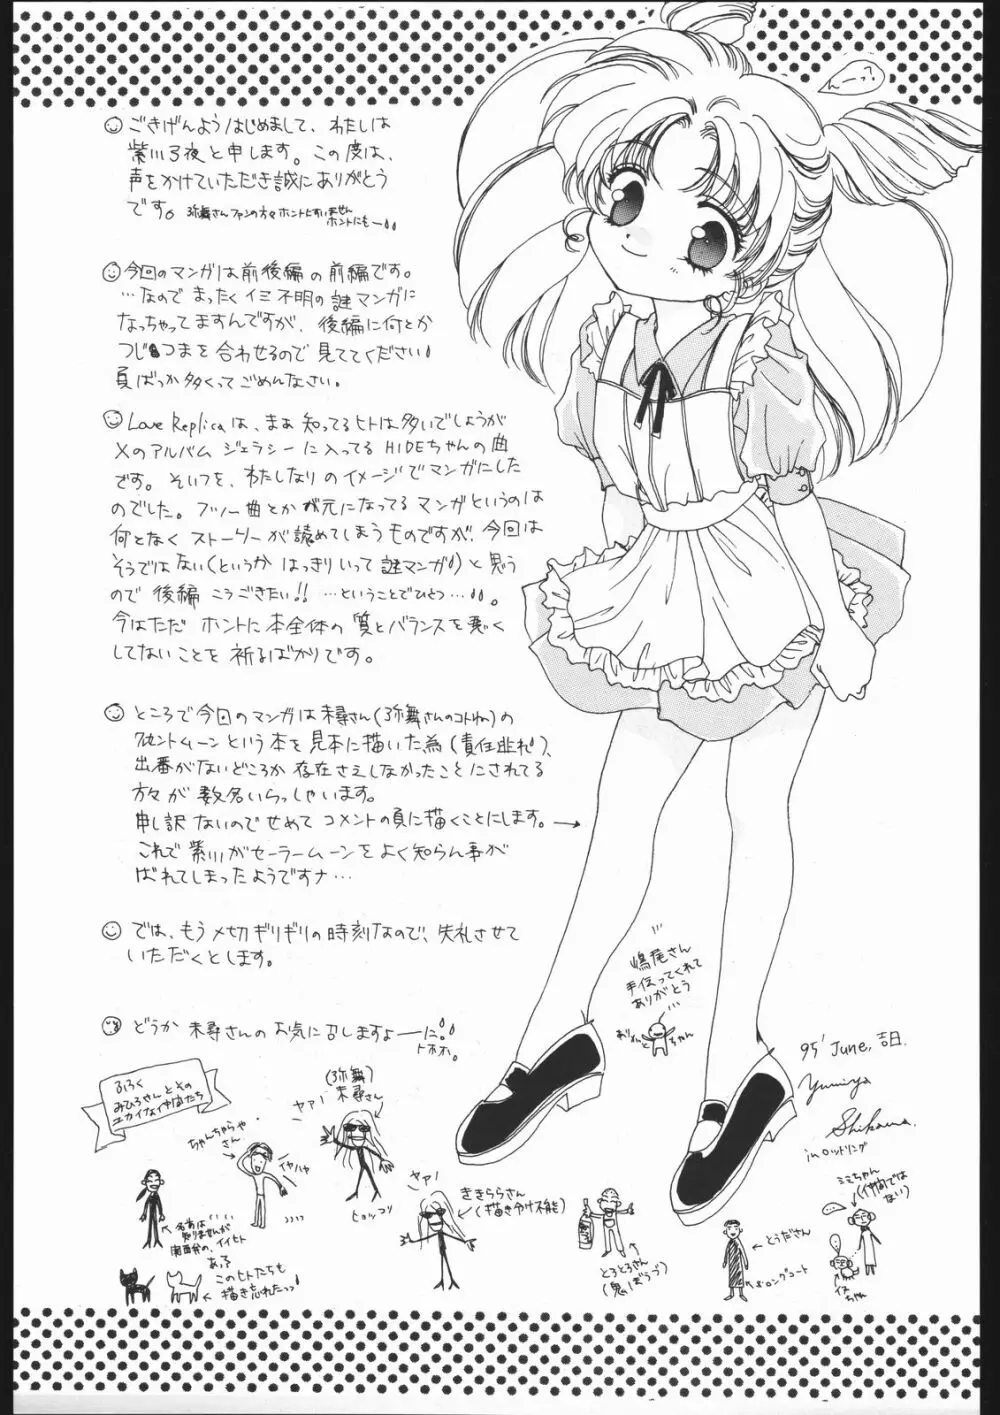 んーっ?
ごきげんようはじめまして、わたしは
紫川弓夜と申します。この度は、
声をかけていただき誠にありがとう
です。弥舞さんファンの方々ホントにすいません
ホントにもー
今回のマンガは前後編の前編です。
…なのでまったくイミ不明の謎マンガに
なっちゃってますんですが、後編に何とか
つじつまを合わせるので見ててください
頁ばっか多くってごめんなさい。
Love Replicaは、まぁ知ってるヒトは多いでしょうが
Xのアルバムジェラシーに入ってるHIDEちゃんの曲
です。そいつを、わたしなりのイメージでマンガにした
のでした。フツー曲とかが元になってるマンガというのは
何となくストーリーが読めてしまうものですが、今回は
そうではない(というかはっきりいって謎マンガ)と思う
ので後編こうごきたい!!…ということでひとつ…。
今はただホントに本全体の質とバランスを悪く
してないことを祈るばかりです。
ところで今回のマンガは未尋さん(弥舞さんのコトね)の
という本を見本に描いた為(責任逃れ)、
出番がないどころか存在さえしなかったことにされてる
方々が数名いらっしゃいます。
申し訳ないのでせめてコメントの頁に描くことにします。→
これで紫川がセーラームーンをよく知らん事が
ばれてしまったようですナ…
では、もう〆切ギリギリの時刻なので、失礼させて
いただくとします。
どうか未尋さんのお気に召しますよーに
トホホ。
嶋尾さん
手伝ってくれて
ありがとう
ちゃん
95' June, 吉日.
Yumiya
Shikawa.
in ロッドリング
ふろく
みひろさんとその
ユカイな仲間たち
ちゃんちゃらや
さん
イヤハヤ
名前は
知りませんが
関西発の、イイヒト
ある
このヒトたちも
描き忘れたっっ
ヤァ!
(弥舞)
未尋さん
ヒョッコリ
ヤァ!
きききらさん
(描き分け不能)
とろとろさん
(鬼ぼうず)
とうださん
ロングコート
ミミちゃん
(仲間では
ない)